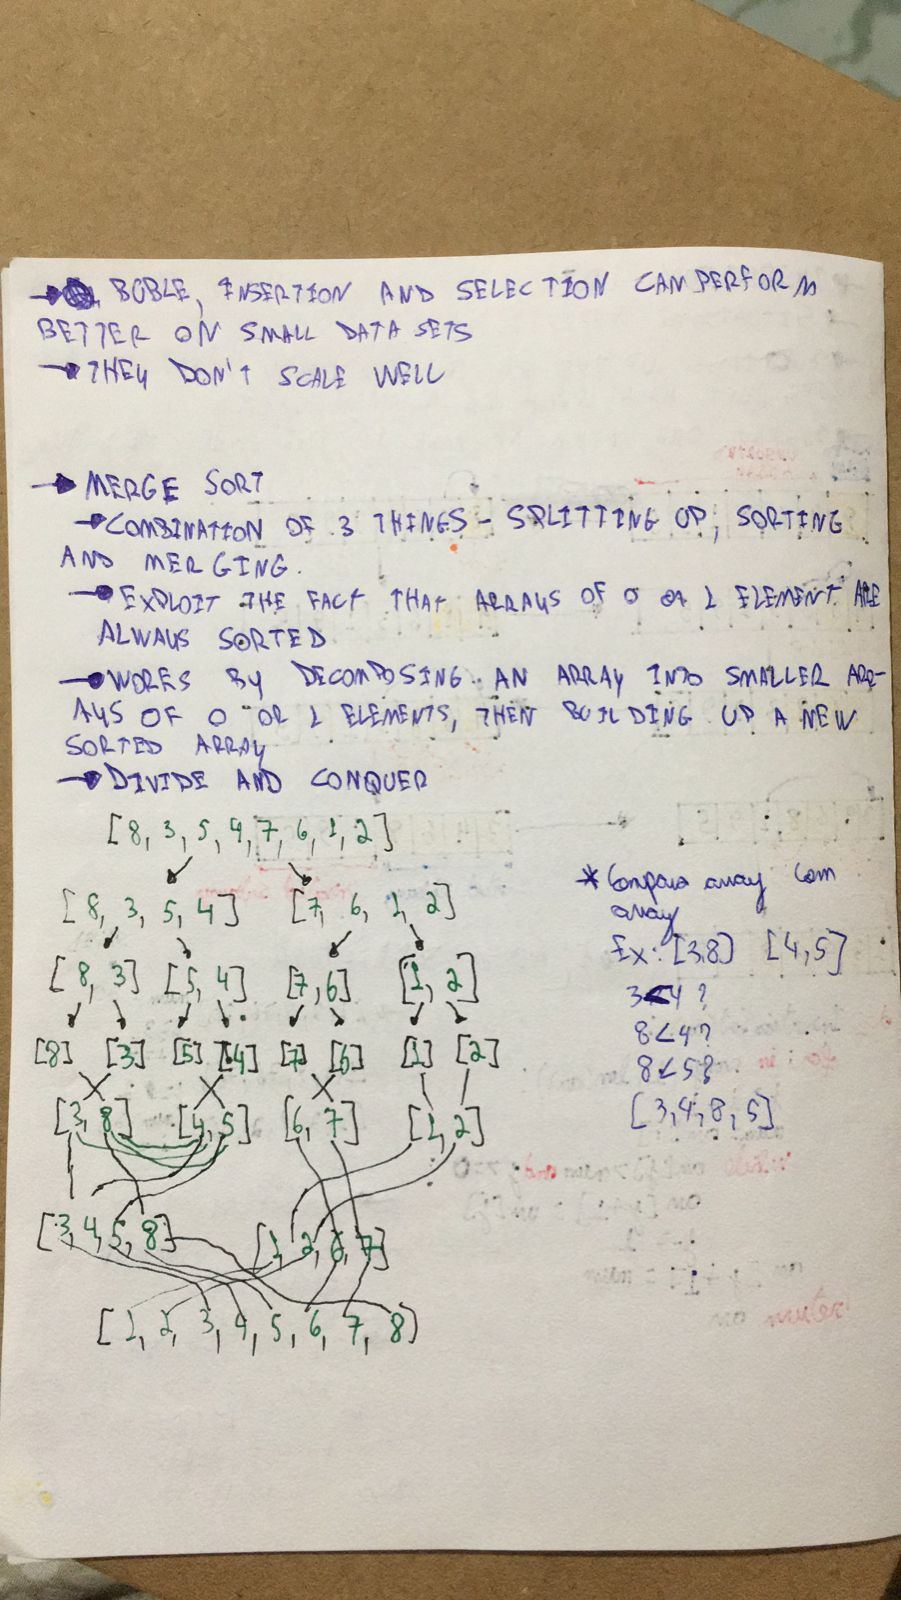 → BUBLE, INSERTION AND SELECTION CAN PERFORM
BETTER ON SMALL DATA SETS
→ THEY DON'T SCALE WELL
→ MERGE SORT
→ COMBINATION OF 3 THINGS - SPLITTING UP, SORTING
AND MERGING.
→ EXPLOIT THE FACT THAT ARRAYS OF 0 OR 1 ELEMENT ARE
ALWAYS SORTED
→ WORKS BY DECOMPOSING AN ARRAY INTO SMALLER ARR-
AYS OF 0 OR 1 ELEMENTS, THEN BUILDING UP A NEW
SORTED ARRAY
→ DIVIDE AND CONQUER
[8, 3, 5, 4, 7, 6, 1, 2]
[8, 3, 5, 4] [7, 6, 1, 2]
[8, 3] [5, 4] [7, 6] [1, 2]
[8] [3] [5] [4] [7] [6] [1] [2]
[3, 8] [4, 5] [6, 7] [1, 2]
[3, 4, 5, 8] [1, 2, 6, 7]
[1, 2, 3, 4, 5, 6, 7, 8]
* Compara array com
array
Ex: [3,8] [4,5]
3<4?
8<4?
8<5?
[3,4,8,5]